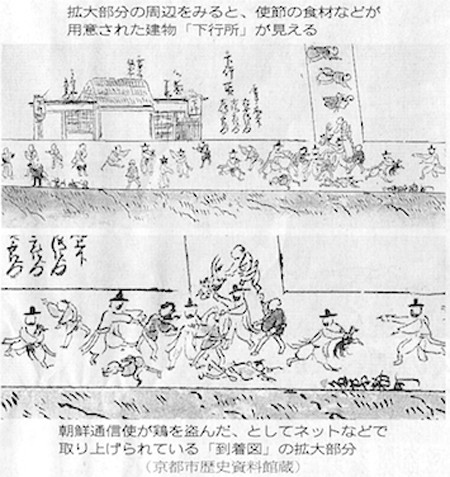 拡大部分の周辺をみると、使節の食材などが
用意された建物「下行所」が見える
下行所
朝鮮通信使が鶏を盗んだ、としてネットなどで
取り上げられている「到着図」の拡大部分
（京都市歴史資料館蔵）